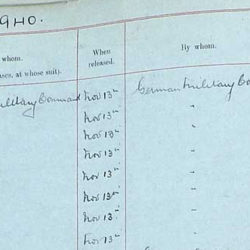 940.
whom.
ases, at whose suit).
When
released.
By whom.
ilitary Command Nov 13th German Military Co
Nov 13th "
Nov 13th "
Nov 13th "
Nov 13th "
Nov 13th "
Nov 13th "
Nov 13th "